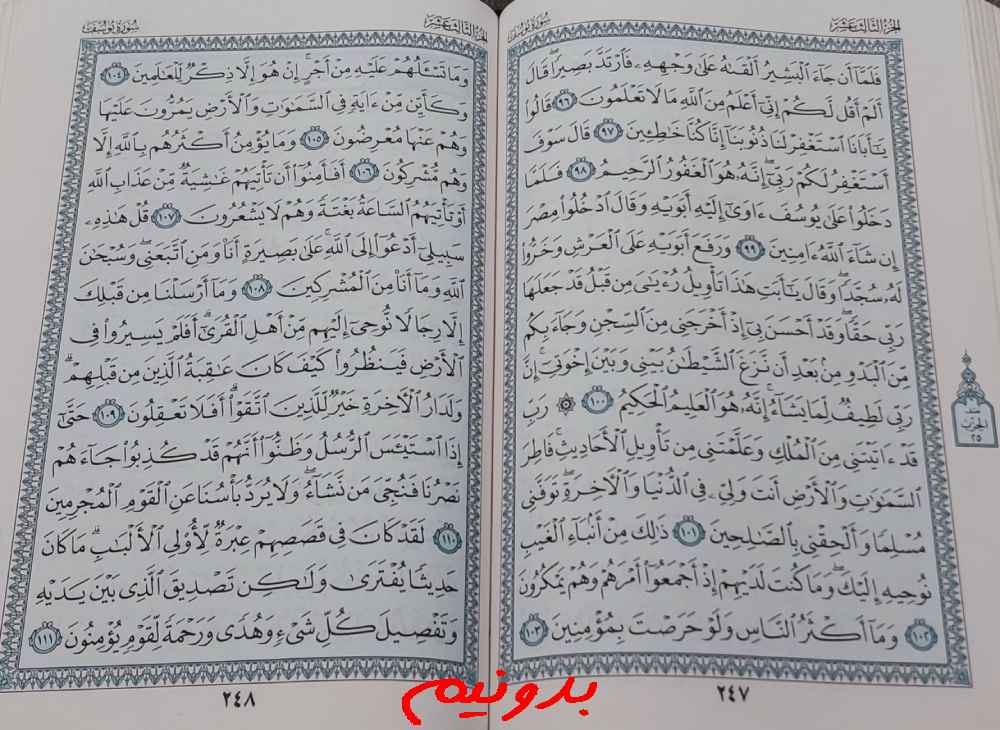 الجزء الثالث عشر
سورة يوسف
فَلَمَّآ أَن جَآءَ ٱلۡبَشِيرُ أَلۡقَىٰهُ عَلَىٰ وَجۡهِهِۦ فَٱرۡتَدَّ بَصِيرٗاۖ قَالَ
أَلَمۡ أَقُل لَّكُمۡ إِنِّيٓ أَعۡلَمُ مِنَ ٱللَّهِ مَا لَا تَعۡلَمُونَ ٩٦ قَالُواْ
يَٰٓأَبَانَا ٱسۡتَغۡفِرۡ لَنَا ذُنُوبَنَآ إِنَّا كُنَّا خَٰطِـِٔينَ ٩٧ قَالَ سَوۡفَ
أَسۡتَغۡفِرُ لَكُمۡ رَبِّيٓۖ إِنَّهُۥ هُوَ ٱلۡغَفُورُ ٱلرَّحِيمُ ٩٨ فَلَمَّا
دَخَلُواْ عَلَىٰ يُوسُفَ ءَاوَىٰٓ إِلَيۡهِ أَبَوَيۡهِ وَقَالَ ٱدۡخُلُواْ مِصۡرَ
إِن شَآءَ ٱللَّهُ ءَامِنِينَ ٩٩ وَرَفَعَ أَبَوَيۡهِ عَلَى ٱلۡعَرۡشِ وَخَرُّواْ
لَهُۥ سُجَّدٗاۖ وَقَالَ يَٰٓأَبَتِ هَٰذَا تَأۡوِيلُ رُءۡيَٰيَ مِن قَبۡلُ قَدۡ جَعَلَهَا
رَبِّي حَقّٗاۖ وَقَدۡ أَحۡسَنَ بِيٓ إِذۡ أَخۡرَجَنِي مِنَ ٱلسِّجۡنِ وَجَآءَ بِكُم
مِّنَ ٱلۡبَدۡوِ مِنۢ بَعۡدِ أَن نَّزَغَ ٱلشَّيۡطَٰنُ بَيۡنِي وَبَيۡنَ إِخۡوَتِيٓۚ إِنَّ
رَبِّي لَطِيفٞ لِّمَا يَشَآءُۚ إِنَّهُۥ هُوَ ٱلۡعَلِيمُ ٱلۡحَكِيمُ ١٠٠ ۞ رَبِّ
قَدۡ ءَاتَيۡتَنِي مِنَ ٱلۡمُلۡكِ وَعَلَّمۡتَنِي مِن تَأۡوِيلِ ٱلۡأَحَادِيثِۚ فَاطِرَ
ٱلسَّمَٰوَٰتِ وَٱلۡأَرۡضِ أَنتَ وَلِيِّۦ فِي ٱلدُّنۡيَا وَٱلۡأٓخِرَةِۖ تَوَفَّنِي
مُسۡلِمٗا وَأَلۡحِقۡنِي بِٱلصَّٰلِحِينَ ١٠١ ذَٰلِكَ مِنۡ أَنۢبَآءِ ٱلۡغَيۡبِ
نُوحِيهِ إِلَيۡكَۖ وَمَا كُنتَ لَدَيۡهِمۡ إِذۡ أَجۡمَعُوٓاْ أَمۡرَهُمۡ وَهُمۡ يَمۡكُرُونَ
١٠٢ وَمَآ أَكۡثَرُ ٱلنَّاسِ وَلَوۡ حَرَصۡتَ بِمُؤۡمِنِينَ ١٠٣
نصف
الحزب
٢٥
٢٤٧
الجزء الثالث عشر
سورة يوسف
وَمَا تَسۡـَٔلُهُمۡ عَلَيۡهِ مِنۡ أَجۡرٍۚ إِنۡ هُوَ إِلَّا ذِكۡرٞ لِّلۡعَٰلَمِينَ ١٠٤
وَكَأَيِّن مِّنۡ ءَايَةٖ فِي ٱلسَّمَٰوَٰتِ وَٱلۡأَرۡضِ يَمُرُّونَ عَلَيۡهَا
وَهُمۡ عَنۡهَا مُعۡرِضُونَ ١٠٥ وَمَا يُؤۡمِنُ أَكۡثَرُهُم بِٱللَّهِ إِلَّا
وَهُم مُّشۡرِكُونَ ١٠٦ أَفَأَمِنُوٓاْ أَن تَأۡتِيَهُمۡ غَٰشِيَةٞ مِّنۡ عَذَابِ ٱللَّهِ
أَوۡ تَأۡتِيَهُمُ ٱلسَّاعَةُ بَغۡتَةٗ وَهُمۡ لَا يَشۡعُرُونَ ١٠٧ قُلۡ هَٰذِهِۦ
سَبِيلِيٓ أَدۡعُوٓاْ إِلَى ٱللَّهِۚ عَلَىٰ بَصِيرَةٍ أَنَا۠ وَمَنِ ٱتَّبَعَنِيۖ وَسُبۡحَٰنَ
ٱللَّهِ وَمَآ أَنَا۠ مِنَ ٱلۡمُشۡرِكِينَ ١٠٨ وَمَآ أَرۡسَلۡنَا مِن قَبۡلِكَ
إِلَّا رِجَالٗا نُّوحِيٓ إِلَيۡهِم مِّنۡ أَهۡلِ ٱلۡقُرَىٰٓۗ أَفَلَمۡ يَسِيرُواْ فِي
ٱلۡأَرۡضِ فَيَنظُرُواْ كَيۡفَ كَانَ عَٰقِبَةُ ٱلَّذِينَ مِن قَبۡلِهِمۡۗ
وَلَدَارُ ٱلۡأٓخِرَةِ خَيۡرٞ لِّلَّذِينَ ٱتَّقَوۡاْۗ أَفَلَا تَعۡقِلُونَ ١٠٩ حَتَّىٰٓ
إِذَا ٱسۡتَيۡـَٔسَ ٱلرُّسُلُ وَظَنُّوٓاْ أَنَّهُمۡ قَدۡ كُذِبُواْ جَآءَهُمۡ
نَصۡرُنَا فَنُجِّيَ مَن نَّشَآءُۖ وَلَا يُرَدُّ بَأۡسُنَا عَنِ ٱلۡقَوۡمِ ٱلۡمُجۡرِمِينَ
١١٠ لَقَدۡ كَانَ فِي قَصَصِهِمۡ عِبۡرَةٞ لِّأُوْلِي ٱلۡأَلۡبَٰبِۗ مَا كَانَ
حَدِيثٗا يُفۡتَرَىٰ وَلَٰكِن تَصۡدِيقَ ٱلَّذِي بَيۡنَ يَدَيۡهِ
وَتَفۡصِيلَ كُلِّ شَيۡءٖ وَهُدٗى وَرَحۡمَةٗ لِّقَوۡمٖ يُؤۡمِنُونَ ١١١
٢٤٨
بدونیم